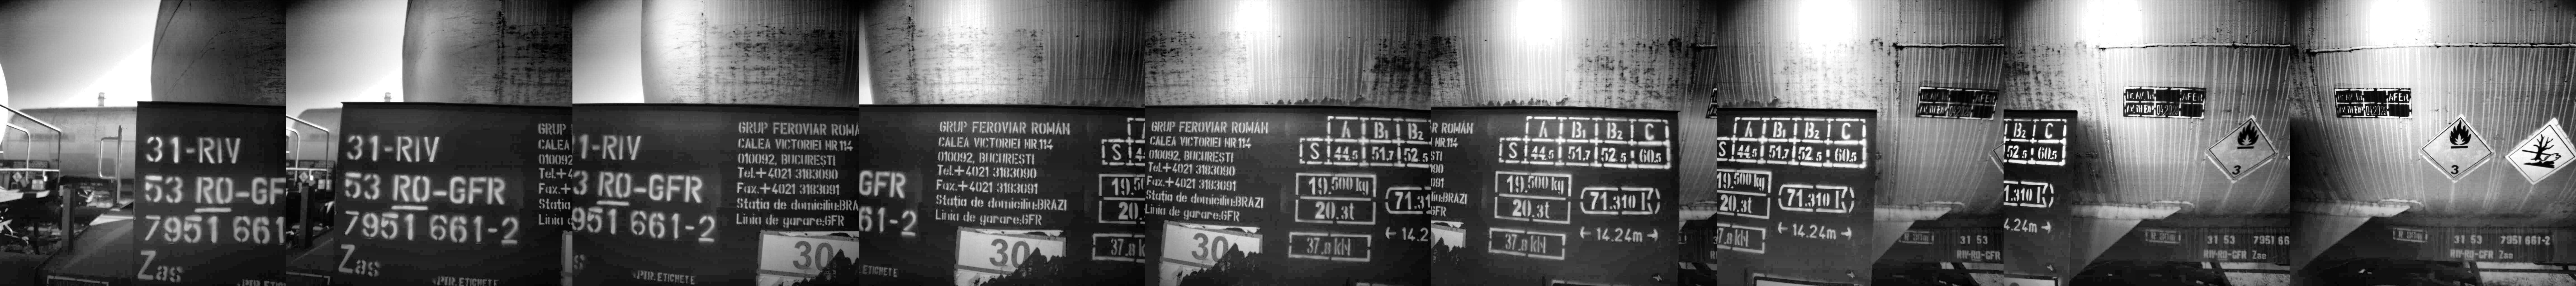 31-RIV
53 RO-GFR
7951 661-2
Zas
GRUP FEROVIAR ROMÂN
CALEA VICTORIEI NR 114
010092, BUCURESTI
Tel.+4021 3183090
Fax.+4021 3183091
Stația de domiciliu:BRAZI
Linia de garare:GFR
30
ETICHETE
A B1 B2 C
S 44.5 51.7 52.5 60.5
19.500 kg
20.3t
71.310 l
37.8 kN
14.24m
3
31 53 7951 661-2
RIV-RO-GFR Zas